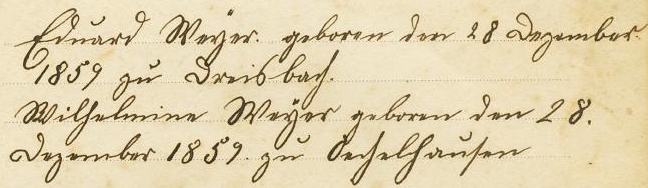 Eduard Weyer. geboren den 28 Dezember
1859 zu Dreisbach.
Wilhelmine Weyer geboren den 28.
Dezember 1859. zu Oechelhausen